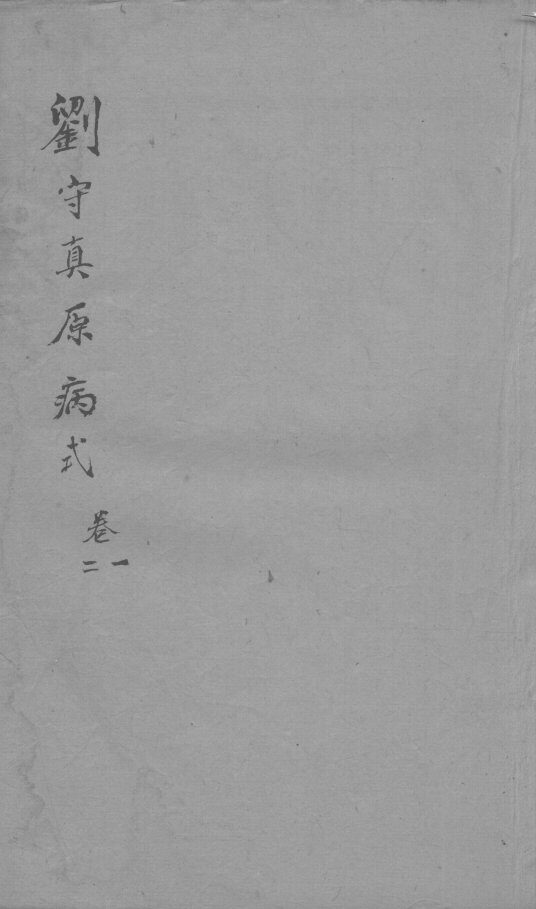 劉守真原病式
卷一二